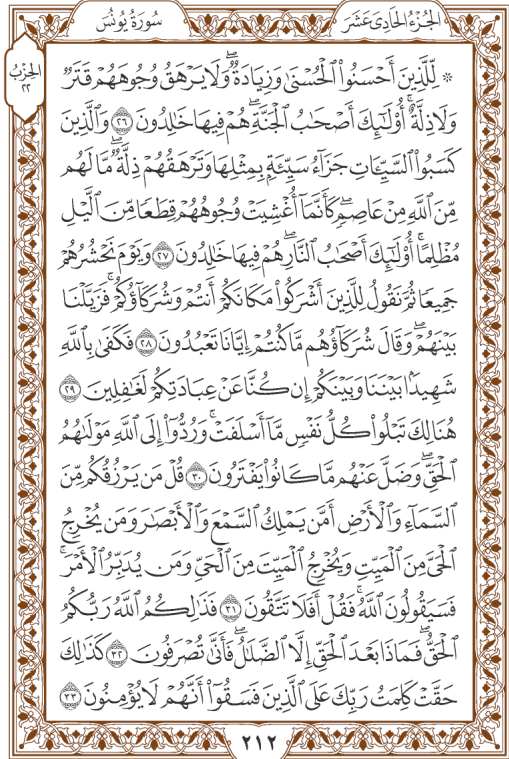 الجُزْءُ الحَادِي عَشَرَ
سُورَةُ يُونُسَ
الحِزْبُ
٢٢
۞ لِّلَّذِينَ أَحْسَنُوا۟ ٱلْحُسْنَىٰ وَزِيَادَةٌ ۖ وَلَا يَرْهَقُ وُجُوهَهُمْ قَتَرٌ
وَلَا ذِلَّةٌ ۚ أُو۟لَـٰٓئِكَ أَصْحَـٰبُ ٱلْجَنَّةِ ۖ هُمْ فِيهَا خَـٰلِدُونَ ٢٦ وَٱلَّذِينَ
كَسَبُوا۟ ٱلسَّيِّـَٔاتِ جَزَآءُ سَيِّئَةٍۭ بِمِثْلِهَا وَتَرْهَقُهُمْ ذِلَّةٌ ۖ مَّا لَهُم
مِّنَ ٱللَّهِ مِنْ عَاصِمٍ ۖ كَأَنَّمَآ أُغْشِيَتْ وُجُوهُهُمْ قِطَعًا مِّنَ ٱلَّيْلِ
مُظْلِمًا ۚ أُو۟لَـٰٓئِكَ أَصْحَـٰبُ ٱلنَّارِ ۖ هُمْ فِيهَا خَـٰلِدُونَ ٢٧ وَيَوْمَ نَحْشُرُهُمْ
جَمِيعًا ثُمَّ نَقُولُ لِلَّذِينَ أَشْرَكُوا۟ مَكَانَكُمْ أَنتُمْ وَشُرَكَآؤُكُمْ ۚ فَزَيَّلْنَا
بَيْنَهُمْ ۖ وَقَالَ شُرَكَآؤُهُم مَّا كُنتُمْ إِيَّانَا تَعْبُدُونَ ٢٨ فَكَفَىٰ بِٱللَّهِ
شَهِيدًۢا بَيْنَنَا وَبَيْنَكُمْ إِن كُنَّا عَنْ عِبَادَتِكُمْ لَغَـٰفِلِينَ ٢٩
هُنَالِكَ تَبْلُوا۟ كُلُّ نَفْسٍ مَّآ أَسْلَفَتْ ۚ وَرُدُّوٓا۟ إِلَى ٱللَّهِ مَوْلَىٰهُمُ
ٱلْحَقِّ ۖ وَضَلَّ عَنْهُم مَّا كَانُوا۟ يَفْتَرُونَ ٣٠ قُلْ مَن يَرْزُقُكُم مِّنَ
ٱلسَّمَآءِ وَٱلْأَرْضِ أَمَّن يَمْلِكُ ٱلسَّمْعَ وَٱلْأَبْصَـٰرَ وَمَن يُخْرِجُ
ٱلْحَىَّ مِنَ ٱلْمَيِّتِ وَيُخْرِجُ ٱلْمَيِّتَ مِنَ ٱلْحَىِّ وَمَن يُدَبِّرُ ٱلْأَمْرَ ۚ
فَسَيَقُولُونَ ٱللَّهُ ۚ فَقُلْ أَفَلَا تَتَّقُونَ ٣١ فَذَٰلِكُمُ ٱللَّهُ رَبُّكُمُ
ٱلْحَقُّ ۖ فَمَاذَا بَعْدَ ٱلْحَقِّ إِلَّا ٱلضَّلَـٰلُ ۖ فَأَنَّىٰ تُصْرَفُونَ ٣٢ كَذَٰلِكَ
حَقَّتْ كَلِمَتُ رَبِّكَ عَلَى ٱلَّذِينَ فَسَقُوٓا۟ أَنَّهُمْ لَا يُؤْمِنُونَ ٣٣
٢١٢